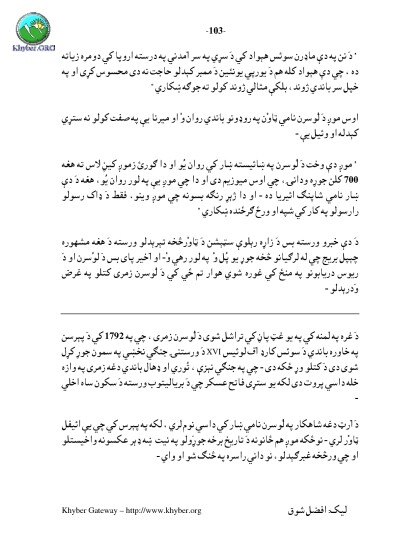 -103-
Khyber.ORG
' دَ نن په دې ماډرن سوئس هېواد کې دَ سړي په سر آمدنې په درسته اروپا کې دومره زياته
ده ، چې دې هېواد کله هم دَ يورپي يونئين دَ ممبر کېدلو حاجت نه دی محسوس کړی او په
خپل سر باندې ژوند ، بلکې مثالي ژوند کولو ته جوګه ښکاري '
اوس موږ دَ لُوسرن نامې ټاوٗن په روډونو باندې روان وُ او ميرنا يې په صفت کولو نه ستړې
کېدله او وئيل يې -
' موږ دې وخت دَ لُوسرن په ښائيسته ښار کې روان يُو او دا ګورئ زموږ کيڼ لاس ته هغه
700 کلن جوړه ودانۍ ، چې اوس ميوزيم دی او دا چې موږ يې په لور روان يُو ، هغه دَ دې
ښار نامې شاپنګ اېريا ده - او دا ژېړ رنګه بسونه چې موږ وينو ، فقط دَ ډاک رسولو
رارسولو په کار کې شپه او ورځ ګرځنده ښکاري '
دَ دې خبرو ورسته بس دَ زاړه رېلوې سټېشن دَ ټاوٗر څخه تېرېدلو ورسته دَ هغه مشهوره
چېپل برېج چې له لرګيانو څخه جوړ يو پُل وُ په لور رهي وُ - او اخير پای بس دَ لُوسرن او دَ
ريوس دريابونو په منځ کې غوره شوي هوار تم ځي کې دَ لُوسرن زمري کتلو په غرض
ودرېدلو -
دَ غره په لمنه کې په يو غټ پاڼ کې تراشل شوی دَ لُوسرن زمری ، چې په 1792 کې دَ پېرسن
په خاوره باندې دَ سوئس ګارډ اف لوئيس XVI دَ ورستنۍ جنګي نخښې په سمون جوړ کړل
شوی دی دَ کتلو وړ ځکه دی - چې په جنګي نېزې ، تُورې او ډهال باندې دغه زمری په وازه
خله داسې پروت دی لکه يو ستړی فاتح عسکر چې دَ بريالیتوب ورسته دَ سکون ساه اخلي
-
دَ آرټ دغه شاهکار په لُوسرن نامې ښار کې داسې نوم لري ، لکه په پېرس کې چې يې ائيفل
ټاوٗر لري - نو ځکه موږ هم ځانونه دَ تاريخ برخه جوړولو په نيت ښه ډېر عکسونه واخيستلو
او چې ور څخه غبرګېدلو ، نو دانې راسره په څنګ شو او وای -
Khyber Gateway – http://www.khyber.org
ليک: افضل شوق